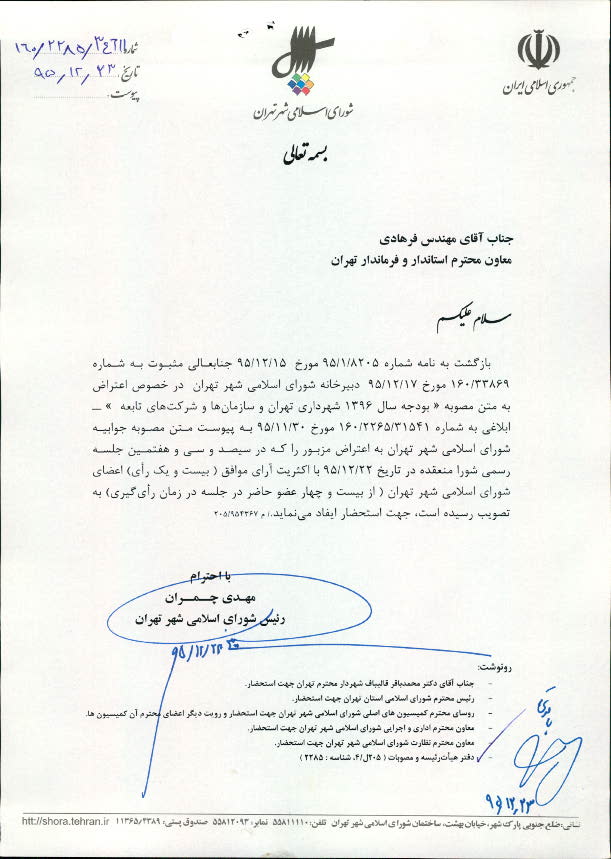 جمهوری اسلامی ایران
شورای اسلامی شهر تهران
شماره: ۱۶۰/۲۲۸۵/۳۴۶۱۱
تاریخ: ۹۵/۱۲/۲۳
پیوست:
بسمه تعالی
جناب آقای مهندس فرهادی
معاون محترم استاندار و فرماندار تهران
سلام علیکم
بازگشت به نامه شماره ۹۵/۱/۸۲۰۵ مورخ ۹۵/۱۲/۱۵ جنابعالی مثبوت به شماره
۱۶۰/۳۳۸۶۹ مورخ ۹۵/۱۲/۱۷ دبیرخانه شورای اسلامی شهر تهران در خصوص اعتراض
به متن مصوبه « بودجه سال ۱۳۹۶ شهرداری تهران و سازمان‌ها و شرکت‌های تابعه » ــ
ابلاغی به شماره ۱۶۰/۲۲۶۵/۳۱۵۴۱ مورخ ۹۵/۱۱/۳۰ به پیوست متن مصوبه جوابیه
شورای اسلامی شهر تهران به اعتراض مزبور را که در سیصد و سی و هفتمین جلسه
رسمی شورا منعقده در تاریخ ۹۵/۱۲/۲۲ با اکثریت آرای موافق ( بیست و یک رأی) اعضای
شورای اسلامی شهر تهران ( از بیست و چهار عضو حاضر در جلسه در زمان رأی‌گیری) به
تصویب رسیده است، جهت استحضار ایفاد می‌نماید./ م ۲۰۵/۹۵۴۳۶۷
با احترام
مهدی چمران
رئیس شورای اسلامی شهر تهران
رونوشت:
- جناب آقای دکتر محمدباقر قالیباف شهردار محترم تهران جهت استحضار.
- رئیس محترم شورای اسلامی استان تهران جهت استحضار.
- روسای محترم کمیسیون های اصلی شورای اسلامی شهر تهران جهت استحضار و رویت دیگر اعضای محترم آن کمیسیون ها.
- معاون محترم اداری و اجرایی شورای اسلامی شهر تهران جهت استحضار.
- معاون محترم نظارت شورای اسلامی شهر تهران جهت استحضار.
- دفتر هیأت‌رئیسه و مصوبات ( ۲۰۵ل/۴، شناسه : ۲۲۸۵ )
۹۵/۱۲/۲۳
نشانی: ضلع جنوبی پارک شهر، خیابان بهشت، ساختمان شورای اسلامی شهر تهران تلفن: ۵۵۸۱۱۱۱۰ نمابر: ۵۵۸۱۲۰۹۳ صندوق پستی: ۱۱۳۶۵/۴۳۸۹ http://shora.tehran.ir